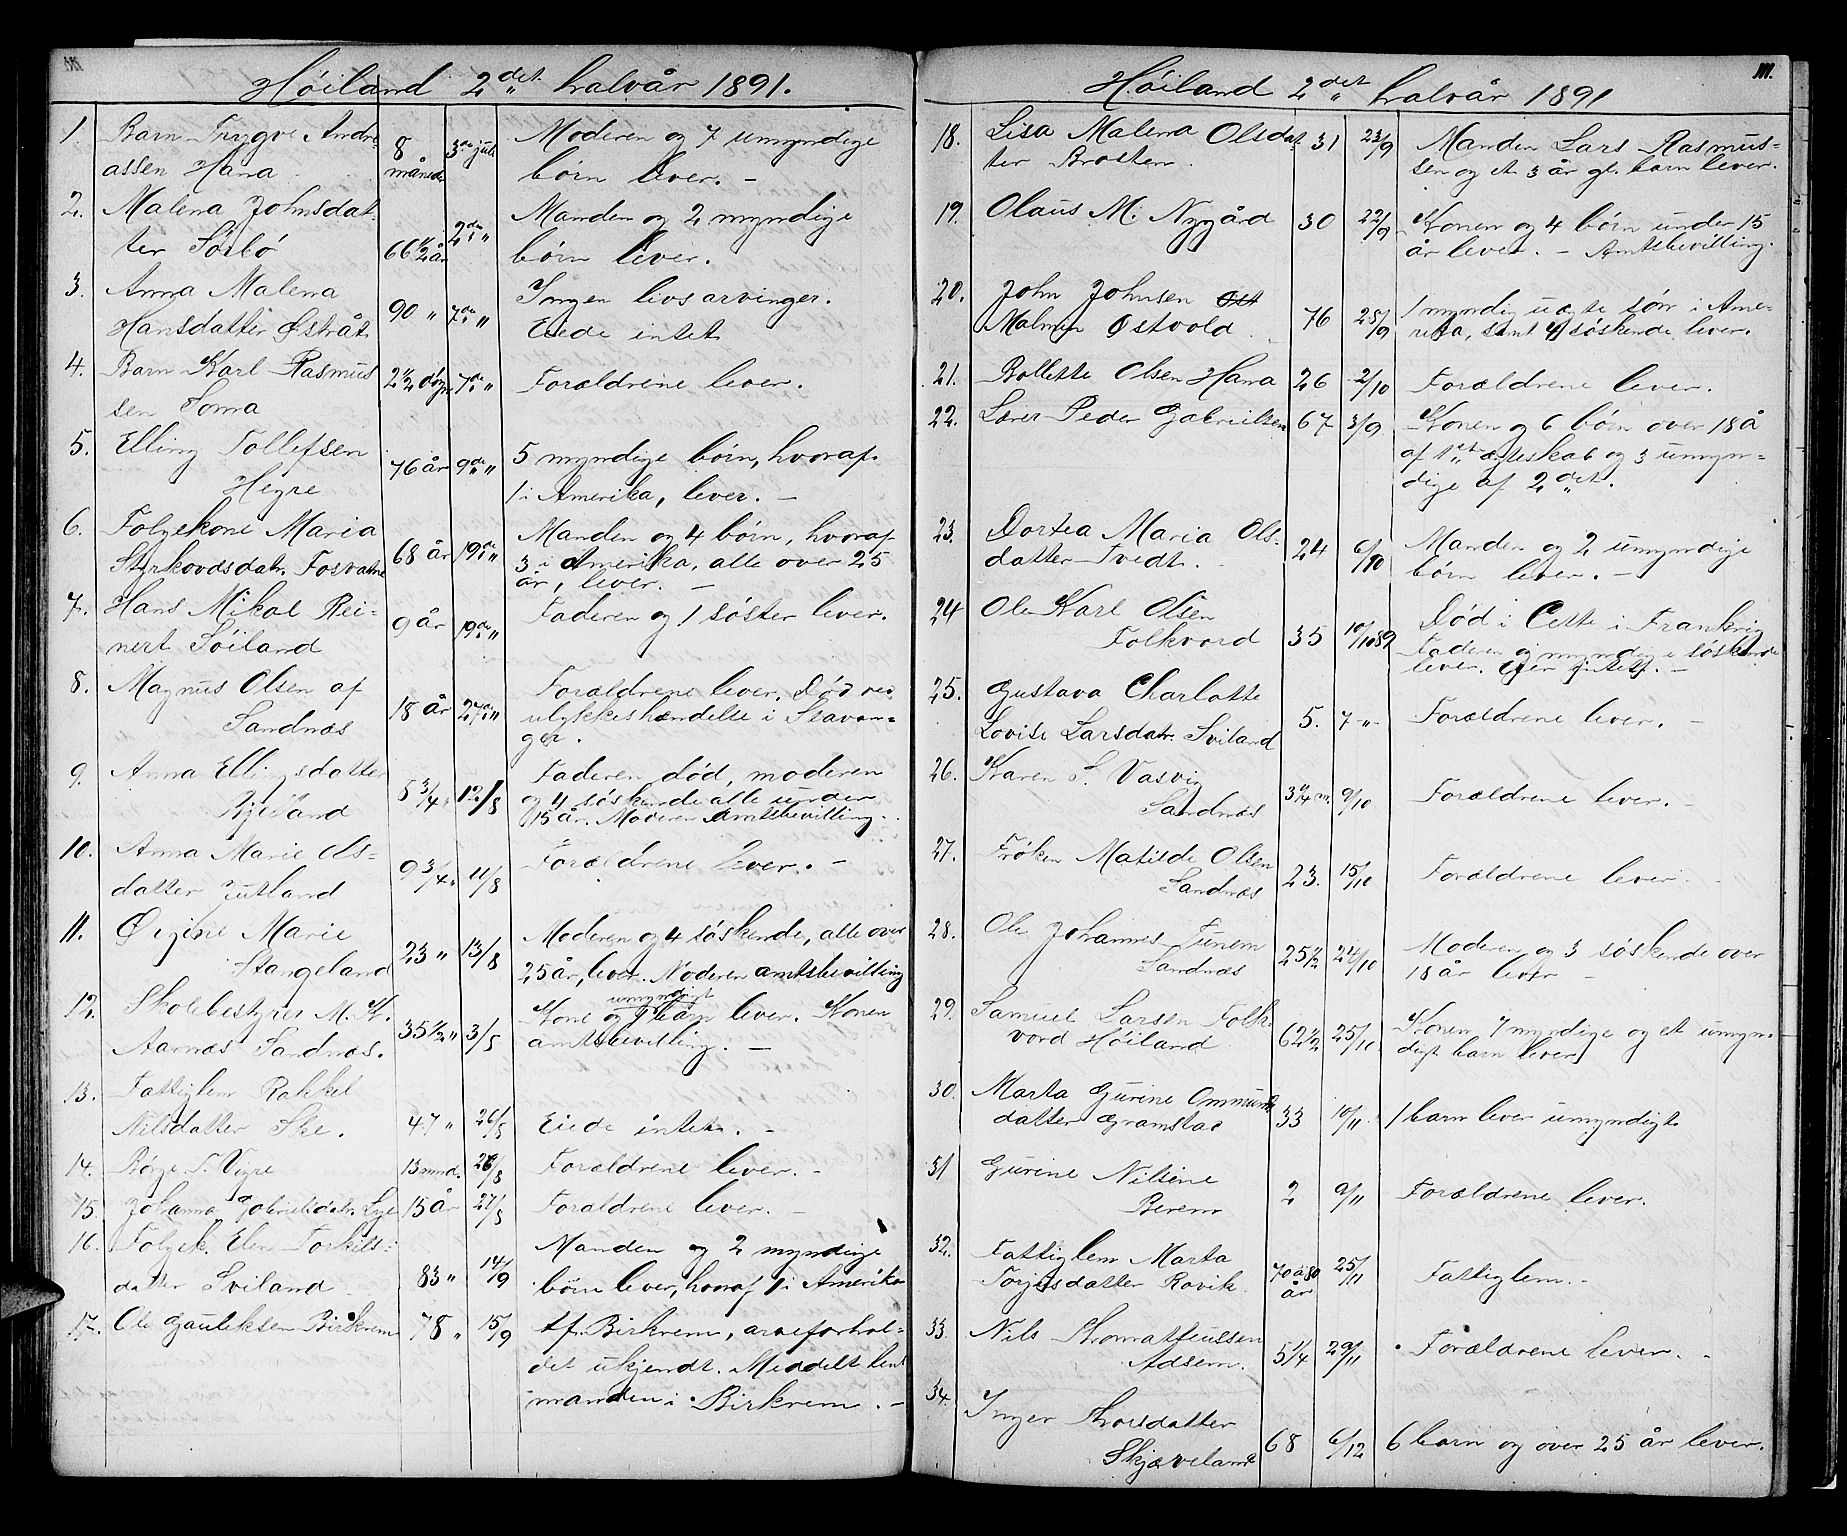 Høiland 2det halvår 1891.
1. Barn Trygve Andre-
assen Hana 8 måneder 3de juli Moderen og 7 umyndige
børn lever. –
2. Malena Johnsdat-
ter Sørbö 66 1/2 år 2den " Manden og 2 myndige
børn lever.
3. Anna Malena
Hansdatter Østråt 90 " 7de " Ingen livsarvinger.
Eiede intet
4. Barn Karl Rasmus
sen Soma 2 1/2 døgn 7de " Forældrene lever.
5. Elling Tollefsen
Hegre 76 år 9de " 5 myndige börn, hvoraf
1 i Amerika, lever. –
6. Folgekone Maria
Styrkovdsdatr. Fosvatne 68 år 19de " Manden og 4 börn, hvoraf
3 i Amerika, alle over 25
år, lever. –
7. Hans Mikal Rei-
nert Söiland 9 år 19de " Faderen og 1 söster lever.
8. Magnus Olsen af
Sandnæs 18 år 27de " Forældrene lever. Död ved
ulykkeshændelse i Stavan-
ger.
9. Anna Ellingsdatter
5 3/4 " 12/8 Faderen död, moderen
og 4 söskende alle under
15 år. Moderen Amtsbevilling.
10. Anna Marie Ols-
datter Jutland 9 3/4 " 11/8 Forældrene lever. –
11. Marie
Stangeland 23 " 13/8 Moderen og 4 söskende, alle over
25 år, lever. Moderen amtsbevilling
12. Skolebestyrer M. K.
Aarnæs Sandnæs. 35 1/2 " 3/8 Kone og 1 umyndigt barn lever. Konen
amtsbevilling. –
13. Fattiglem Rakkel
Nilsdatter Ske. 47 " 26/8 Eiede intet. –
14. Börge T. Vigre 13 mnd. 28/8 Forældrene lever. –
15. Johanna Gabrielsdatr. Lye 15 år 27/8 Forældrene lever. –
16. Folgek. Elen Torkils-
datter Sviland 83 " 14/9 Manden og 2 myndige
börn lever, hvoraf 1 i Amerika
17. Ole Gauteksen Birkrem 78 " 15/9 Af Birkrem, arveforhol-
det ukjendt. Meddelt lens
manden i Birkrem. –
111.
Høiland 2det halvår 1891
18. Lisa Malena Olsdat
ter Brosten. 31 23/9 Manden Lars Rasmus-
sen og et 3 år gl. barn lever.
19. Olaus M. Nygård 30 22/9 Konen og 4 börn under 15
år lever. – Amtsbevilling.
20. John Johnsen Øst
Malmin Østvold 76 25/9 1 myndig uægte sön i Ame-
rika, samt 4 söskende lever.
21. Bollette Olsen Hana 26 2/10 Forældrene lever.
22. Lærer Peder Gabrielsen 67 3/9 Konen og 6 börn over 18 å
af 1ste ægteskab og 3 umyn-
dige af 2det.
23. Dortea Maria Ols-
datter Tvedt. 24 6/10 Manden og 2 umyndige
börn lever. –
24 Ole Karl Olsen
Folkvord 35 10/10 89 Död i Cette i Frankrig
Faderen og myndige söskende
lever. Eier intet. –
25. Gustava Charlotte
Lovise Larsdatr. Sviland 5. 7 " Forældrene lever. –
26. Karen S. Vasvig
Sandnæs 3 3/4 m. 9/10 Forældrene lever. –
27. Frøken Matilde Olsen
Sandnæs 23. 15/10 Forældrene lever –
28. Ole Johannes Tunem
Sandnæs 25 1/2 24/10 Moderen og 3 söskende over
18 år lever –
29. Samuel Larsen Folk-
vord Høiland 62 1/2 25/10 Konen, 7 myndige og et umyn-
digt barn lever
30. Marta Gurine Ommunds
datter Gramstad 33 10/11 1 barn lever umyndigt
31 Gurine Nilsine
Berem 2 9/11 Forældrene lever.
32. Fattiglem Marta
Torjusdatter Rovik 70 a 80 år 25/11 Fattiglem. –
33. Nils
Adsem. 5 1/4 29/11 Forældrene lever. –
34. Inger
Skjæveland 68 6/12 6 barn og over 25 år lever.